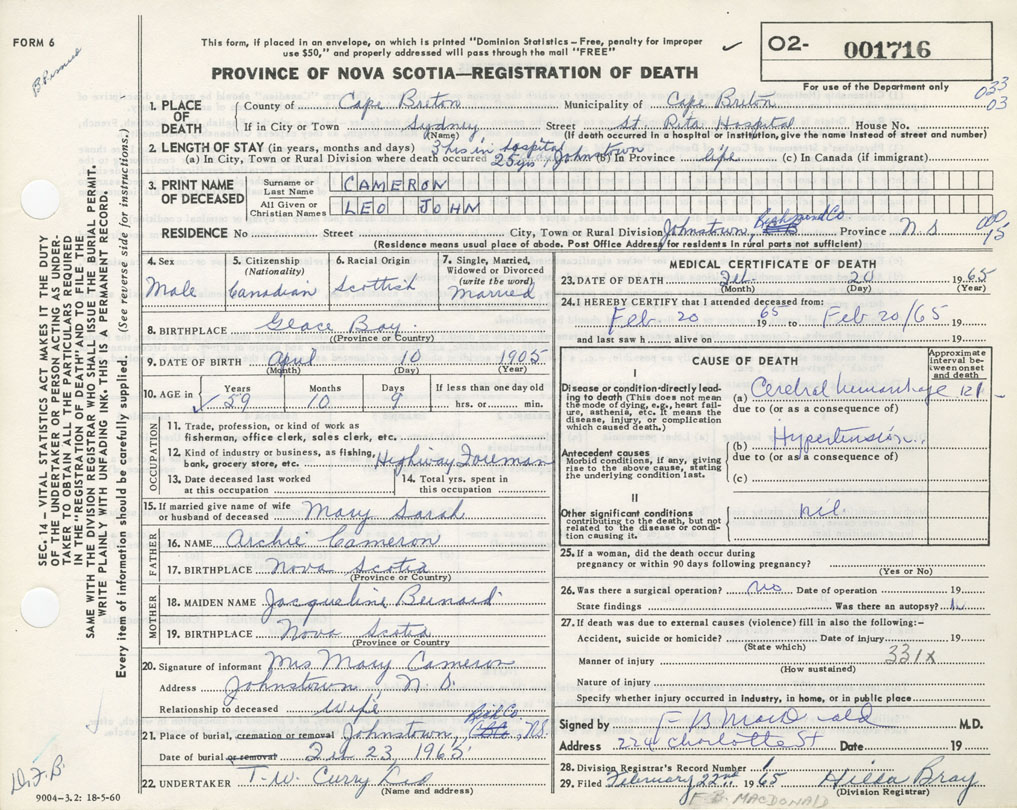 FORM 6
B Permit
This form, if placed in an envelope, on which is printed "Dominion Statistics – Free, penalty for improper
use $50," and properly addressed will pass through the mail "FREE"
O2- 001716
For use of the Department only
PROVINCE OF NOVA SCOTIA—REGISTRATION OF DEATH
033
03
1. PLACE OF DEATH County of Cape Breton Municipality of Cape Breton
If in City or Town Sydney (Name) Street St. Rita Hospital House No.
(If death occurred in a hospital or institution, give the name instead of street and number)
2. LENGTH OF STAY (in years, months and days) 3 hrs in hospital
(a) In City, Town or Rural Division where death occurred 25 yrs, Johnstown (b) In Province life (c) In Canada (if immigrant)
3. PRINT NAME OF DECEASED Surname or Last Name CAMERON
All Given or Christian Names LEO JOHN
RESIDENCE No Street City, Town or Rural Division Johnstown, Richmond Co Province N.S
(Residence means usual place of abode. Post Office Address for residents in rural parts not sufficient)
00
15
SEC. 14 – VITAL STATISTICS ACT MAKES IT THE DUTY
OF THE UNDERTAKER OR PERSON ACTING AS UNDER-
TAKER TO OBTAIN ALL THE PARTICULARS REQUIRED
IN THE "REGISTRATION OF DEATH" AND TO FILE THE
SAME WITH THE DIVISION REGISTRAR WHO SHALL ISSUE THE BURIAL PERMIT.
WRITE PLAINLY WITH UNFADING INK. THIS IS A PERMANENT RECORD.
Every item of information should be carefully supplied. (See reverse side for instructions.)
4. Sex Male
5. Citizenship (Nationality) Canadian
6. Racial Origin Scottish
7. Single, Married, Widowed or Divorced (write the word) Married
8. BIRTHPLACE Glace Bay
(Province or Country)
9. DATE OF BIRTH April 10 1905
(Month) (Day) (Year)
10. AGE in Years 59 Months 10 Days 9 If less than one day old hrs. or min.
OCCUPATION
11. Trade, profession, or kind of work as
fisherman, office clerk, sales clerk, etc.
12. Kind of industry or business, as fishing,
bank, grocery store, etc. Highway Foreman
13. Date deceased last worked
at this occupation
14. Total yrs. spent in
this occupation
15. If married give name of wife
or husband of deceased Mary Sarah
FATHER
16. NAME Archie Cameron
17. BIRTHPLACE Nova Scotia
(Province or Country)
MOTHER
18. MAIDEN NAME Jacqueline
19. BIRTHPLACE Nova Scotia
(Province or Country)
20. Signature of informant Mrs Mary Cameron
Address Johnstown, N.S.
Relationship to deceased Wife
21. Place of burial, cremation or removal Johnstown, Rich Co, N.S.
Date of burial or removal Feb 23, 1965
22. UNDERTAKER T.W. Curry Ltd
(Name and address)
9004-3.2: 18-5-60
MEDICAL CERTIFICATE OF DEATH
23. DATE OF DEATH Feb. 20 1965
(Month) (Day) (Year)
24. I HEREBY CERTIFY that I attended deceased from:
Feb 20 1965 to Feb 20/65 19
and last saw h alive on 19
CAUSE OF DEATH
Approximate
interval be-
tween onset
and death
I
Disease or condition directly lead-
ing to death (This does not mean
the mode of dying, e.g., heart failure,
asthenia, etc. It means the
disease, injury, or complication
which caused death.)
(a) Cerebral hemorrhage
due to (or as a consequence of)
(b) Hypertension
due to (or as a consequence of)
(c)
Antecedent causes
Morbid conditions, if any, giving
rise to the above cause, stating
the underlying condition last.
II
Other significant conditions
contributing to the death, but not
related to the disease or condi-
tion causing it.
nil
25. If a woman, did the death occur during
pregnancy or within 90 days following pregnancy?
(Yes or No)
26. Was there a surgical operation? no Date of operation 19
State findings Was there an autopsy?
27. If death was due to external causes (violence) fill in also the following:–
Accident, suicide or homicide? Date of injury 19
(State which)
331X
Manner of injury
(How sustained)
Nature of injury
Specify whether injury occurred in industry, in home, or in public place
Signed by F B MacDonald M.D.
Address 224 Charlotte St Date 19
28. Division Registrar's Record Number 1
29. Filed February 22nd 1965 Hilda Bray
(Division Registrar)
F. B. MACDONALD